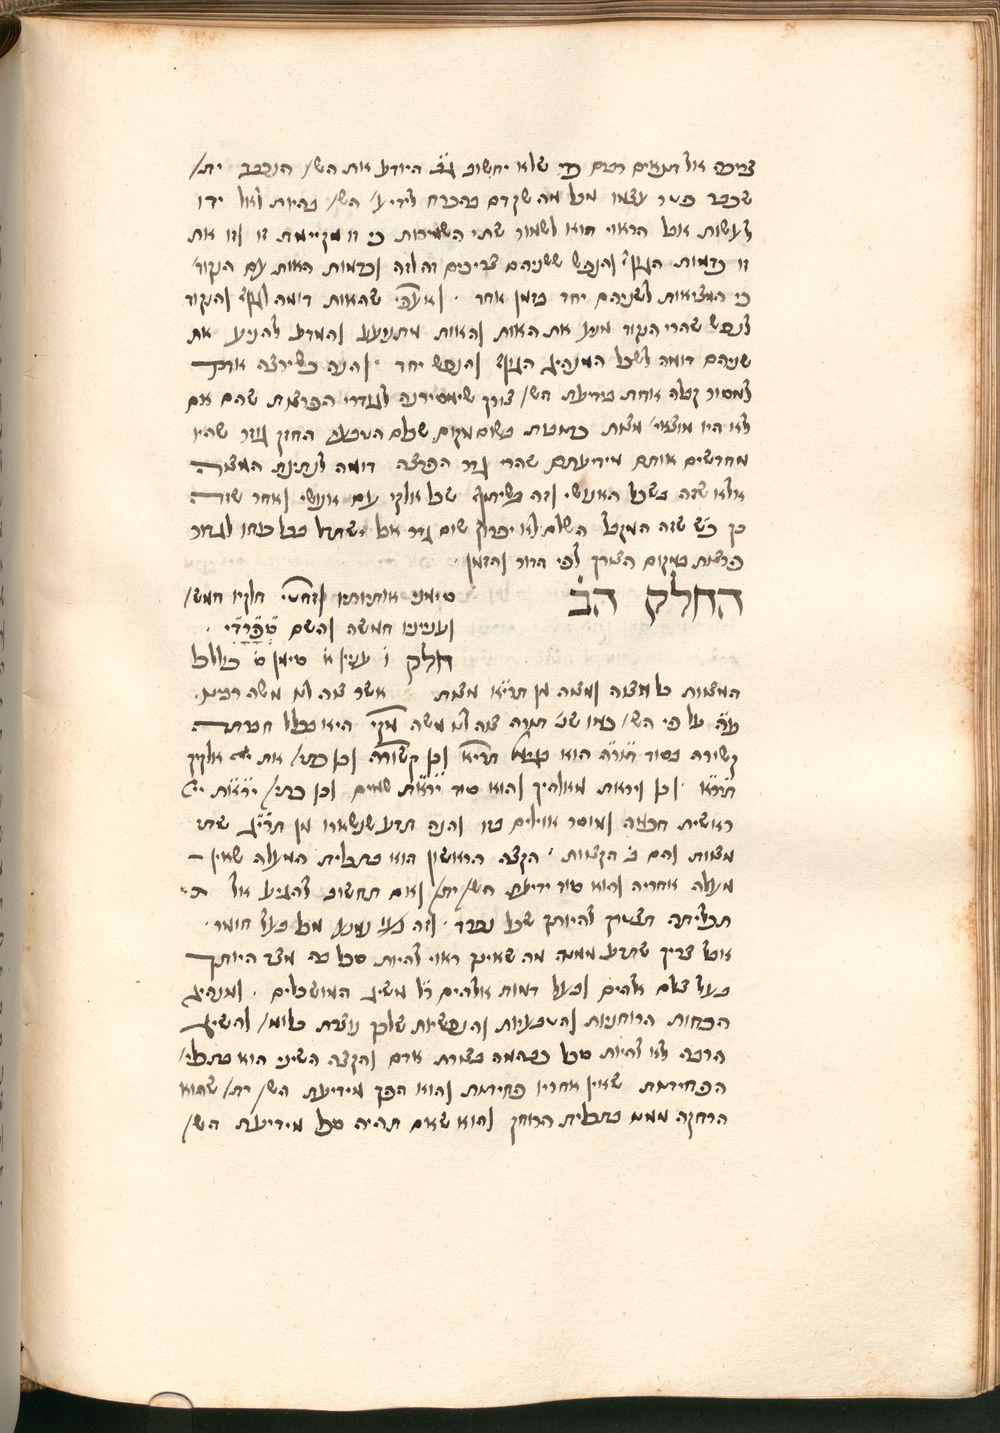 צריכה אל תנאים רבים כדי שלא יחשוב גם היודע את הש/ הנכבד ית/
שכבר פטר עצמו מכל מה שקדם בהכרח לידיע/ הש/ בהיות לאל ידו
לעשות אבל הראוי הוא לשמור שתי השמירות כי זו מקיימת זו וזו את
זו כדמות הגוף והנפש ששניהם צריכים זה לזה וכדמות האות עם הנקוד/
כי המציאות לשניהם יחד בזמן אחד · שהאות דומה לגוף והנקוד
לנפש שהרי הנקוד מניע את האות והאות מתנועע והמדע להניע את
שניהם דומה לשכל המנהיג הגוף והנפש יחד · והנה כשירצה אדם
למסור קבלה אחת בידיעת הש/ צורך שימסירנה לגודרי הפרצות שהם אם
לא היו מוצאי/ מצות כדמטת בשום מקום שכלם הטבעם החזק גודר שהיו
מחדשים אותם מידיעתם שהרי גדר הפרצה דומה לנתינת המצוה
אלא שזה בשכל האנושי וזה בשיתוף שכל אלקי עם אנושי ואחר שזה
כך כ״ש שזה המקבל השלם לא יפרוץ שום גדר אבל ישתדל בכל כחו לגדור
פרצות במקום הצורך לפי הדור והזמן ·
החלק הב׳ סימני אותיותיו חלקיו חמש/
ועניניו חמשה והשם
חלק ו׳ ענין א׳ סימן ס׳ כולל
המצות כל מצוה ומצוה מן תרי״א מצות אשר צוה לנו משה רבינו
ע״ה על פי הש/ כמו שכ׳ תורה צוה לנו משה היא בכלל חברתה
קשורה בסוד תור״ה הוא תרי״א וכן קשורה וכן כת׳/ את יי׳ אלקיך
תיר״א · וכן ויראת מאלהיך והוא סוד ירא״ת שמים וכן כת׳/ ירא״ת יי׳
ראשית חכמה ומוסר אוילים בזו והנה תדע שנשארו מן תרי״ג שתי
מצות והם ב׳ הקצות · הקצה הראשון הוא בתכלית המעלה שאין
מעלה אחריה והוא סוד ידיעת הש/ ית/ ואם תחשוב להגיע אל
תכליתה תצטרך להיותך שכל נפרד · וזה בעי׳ נמנע מכל בעל חומר ·
אבל צריך שתדע ממנה מה שאינך ראוי להיות סכל בה מצד היותך
בעל צלם אלהים ובעל דמות אלהים ר״ל משיג המושכלים · ומנהיג
הכחות הרוחניות והטבעיות והנפשיות שלכך נוצרת כלומ/ להשיג
הרבה לא להיות סכל כבהמה בצורת אדם והקצה השיני הוא בתכלי/
הפחיתות שאין אחריו פחיתות והוא הפך מידיעת הש/ ית/ שהוא
הרחקה ממנו בתכלית הרוחק והוא שאם תהיה סכל מידיעת הש/